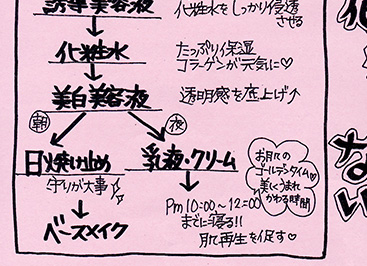 誘導美容液
化粧水をしっかり浸透
させる
化粧水
たっぷり保湿
コラーゲンが元気に♡
美白美容液
透明感を底上げ↑
朝
夜
日焼け止め
守りが大事
ベースメイク
乳液・クリーム
お肌の
ゴールデンタイム
美しくうまれ
かわる時間
Pm10:00~12:00
までに寝る!!
肌再生を促す♡
ない